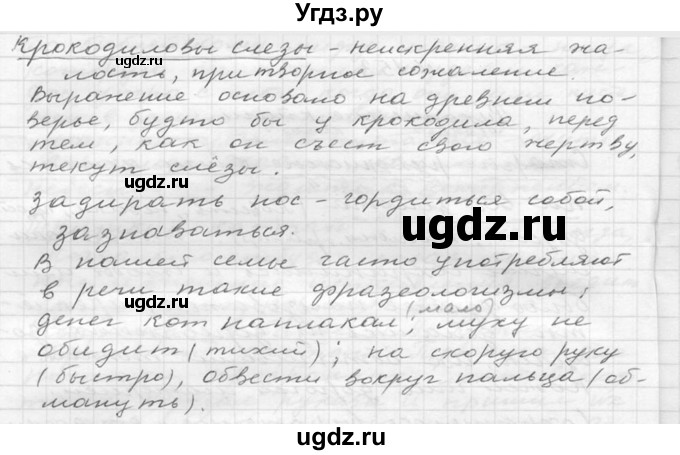 Угдз.ру
Крокодиловы слезы - неискренняя жа-
лость, притворное сожаление.
Выражение основано на древнем по-
верье, будто бы у крокодила, перед
тем, как он съест свою жертву,
текут слёзы.
ugdz.ru
ugdz.ru
Задирать нос - гордиться собой,
зазнаваться.
ugdz.ru
ugdz.ru
В нашей семье часто употребляют
в речи такие фразеологизмы:
денег кот наплакал (мало); муху не
обидит (тихий); на скорую руку
(быстро), обвести вокруг пальца (об-
мануть).
ugdz.ru
ugdz.ru
ugdz.ru